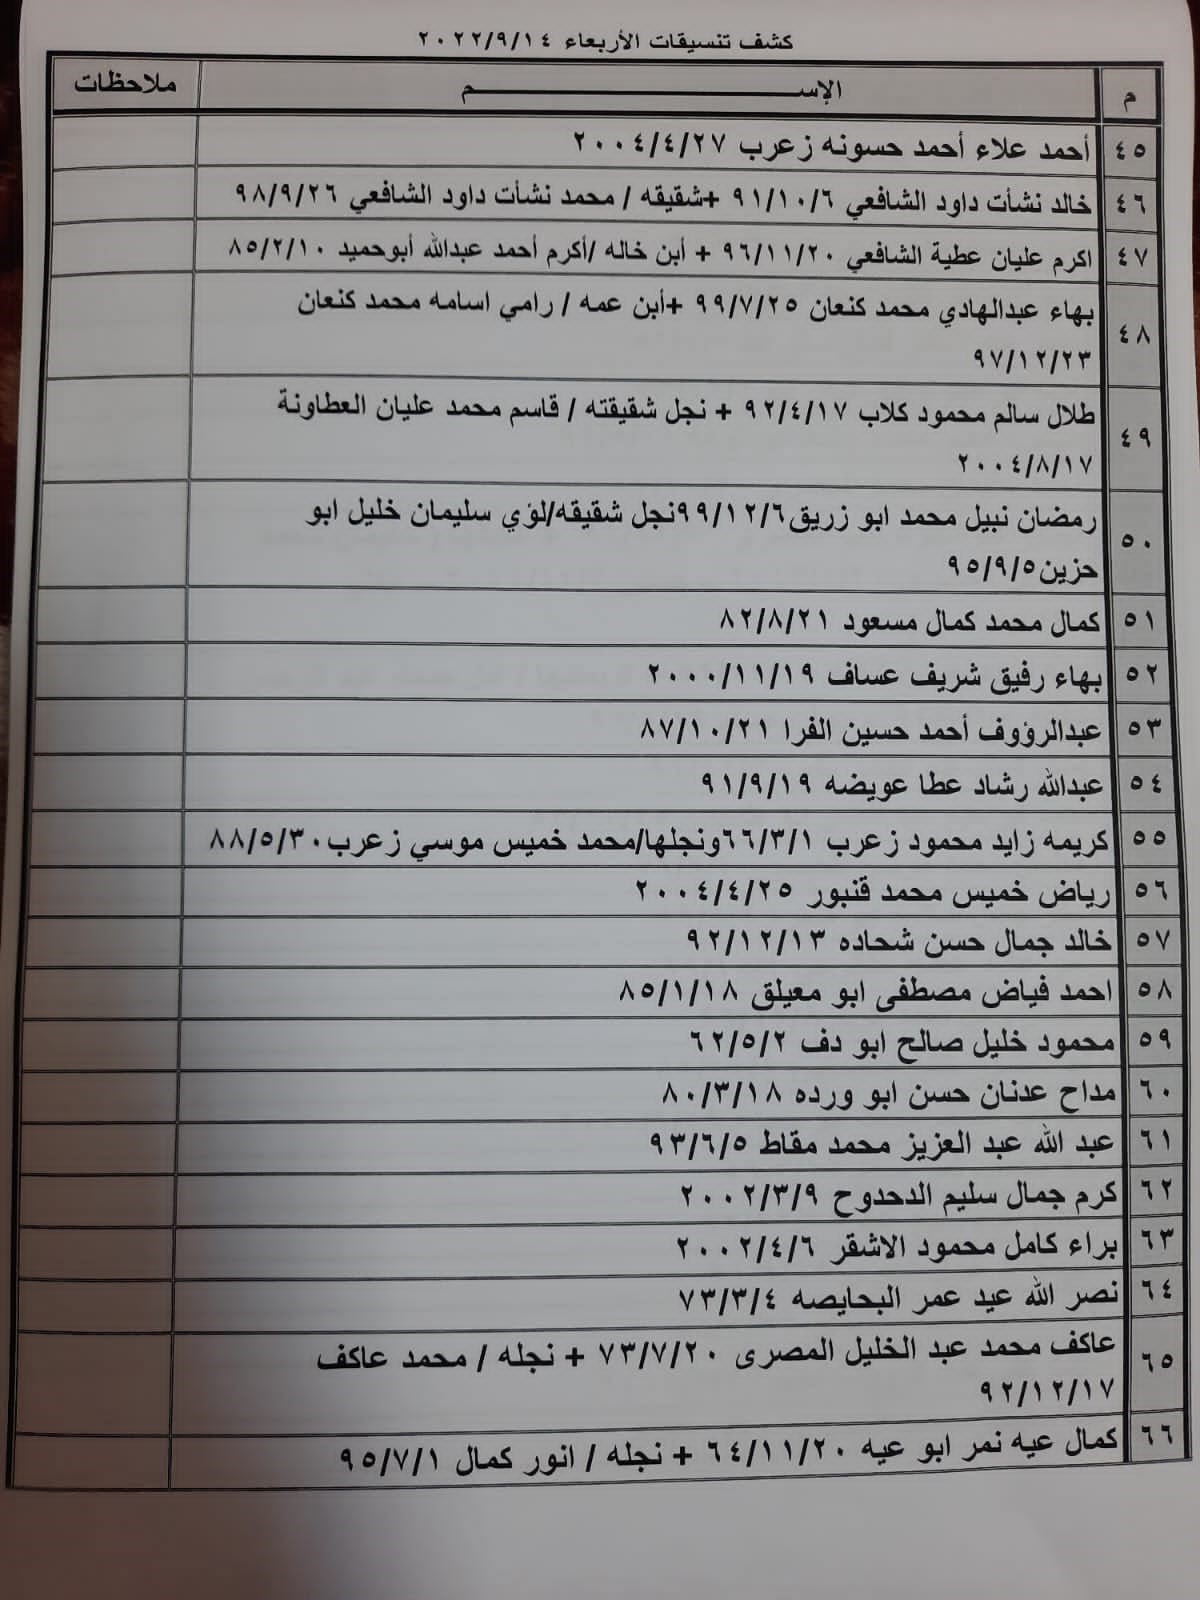 كشف تنسيقات الأربعاء ٢٠٢٢/٩/١٤
م الإســـــــــــــم ملاحظات
٤٥ أحمد علاء أحمد حسونه زعرب ٢٠٠٤/٤/٢٧
٤٦ خالد نشأت داود الشافعي ٩١/١٠/٦ +شقيقه / محمد نشأت داود الشافعي ٩٨/٩/٢٦
٤٧ اكرم عليان عطية الشافعي ٩٦/١١/٢٠ + أبن خاله /أكرم أحمد عبدالله أبوحميد ٨٥/٢/١٠
٤٨ بهاء عبدالهادي محمد كنعان ٩٩/٧/٢٥ +أبن عمه / رامي اسامه محمد كنعان
٩٧/١٢/٢٣
٤٩ طلال سالم محمود كلاب ٩٢/٤/١٧ + نجل شقيقته / قاسم محمد عليان العطاونة
٢٠٠٤/٨/١٧
٥٠ رمضان نبيل محمد ابو زريق٩٩/١٢/٦نجل شقيقه/لؤي سليمان خليل ابو
حزين٩٥/٩/٥
٥١ كمال محمد كمال مسعود ٨٢/٨/٢١
٥٢ بهاء رفيق شريف عساف ٢٠٠٠/١١/١٩
٥٣ عبدالرؤوف أحمد حسين الفرا ٨٧/١٠/٢١
٥٤ عبدالله رشاد عطا عويضه ٩١/٩/١٩
٥٥ كريمه زايد محمود زعرب ٦٦/٣/١ونجلها/محمد خميس موسي زعرب٨٨/٥/٣٠
٥٦ رياض خميس محمد قنبور ٢٠٠٤/٤/٢٥
٥٧ خالد جمال حسن شحاده ٩٢/١٢/١٣
٥٨ احمد فياض مصطفى ابو معيلق ٨٥/١/١٨
٥٩ محمود خليل صالح ابو دف ٦٢/٥/٢
٦٠ مداح عدنان حسن ابو ورده ٨٠/٣/١٨
٦١ عبد الله عبد العزيز محمد مقاط ٩٣/٦/٥
٦٢ كرم جمال سليم الدحدوح ٢٠٠٢/٣/٩
٦٣ براء كامل محمود الاشقر ٢٠٠٢/٤/٦
٦٤ نصر الله عيد عمر البحايصه ٧٣/٣/٤
٦٥ عاكف محمد عبد الخليل المصرى ٧٣/٧/٢٠ + نجله / محمد عاكف
٩٢/١٢/١٧
٦٦ كمال عيه نمر ابو عيه ٦٤/١١/٢٠ + نجله / انور كمال ٩٥/٧/١